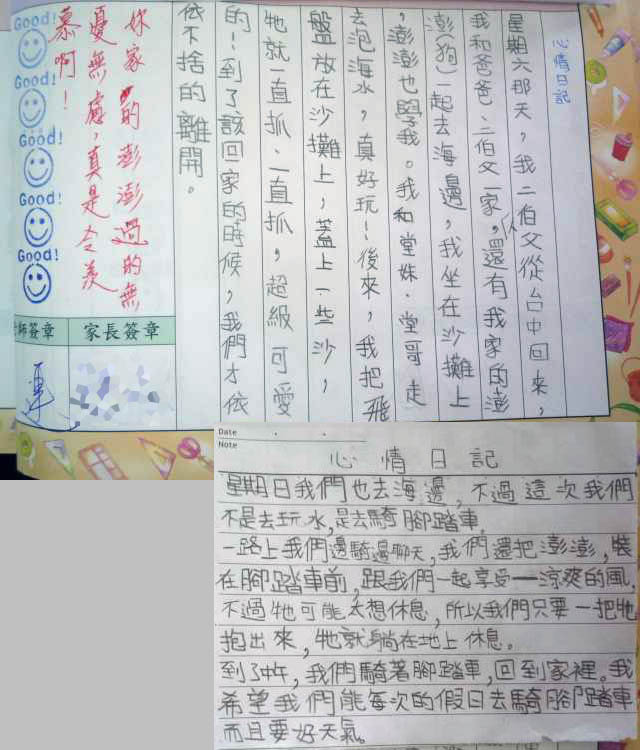 心情日記
星期六那天,我二伯父從台中回來,
我和爸爸、二伯父一家,還有我家的澎
澎(狗)一起去海邊,我坐在沙攤上
,澎澎也學我。我和堂妹、堂哥走
去泡海水,真好玩!後來,我把飛
盤放在沙攤上,蓋上一些沙,
牠就一直抓、一直抓,超級可愛
的!到了該回家的時候,我們才依
依不捨的離開。
妳家的澎澎過的無
憂無慮,真是令羨
慕啊!
Good!
Good!
Good!
Good!
Good!
師簽章
家長簽章
Date
Note
心情日記
星期日我們也去海邊,不過這次我們
不是去玩水,是去騎腳踏車,
一路上我們邊騎邊聊天,我們還把澎澎,裝
在腳踏車前,跟我們一起享受一涼爽的風,
不過牠可能太想休息,所以我們只要一把牠
抱出來,牠就躺在地上休息。
到了中午,我們騎著腳踏車,回到家裡。我
希望我們能每次的假日去騎腳踏車
而且要好天氣。